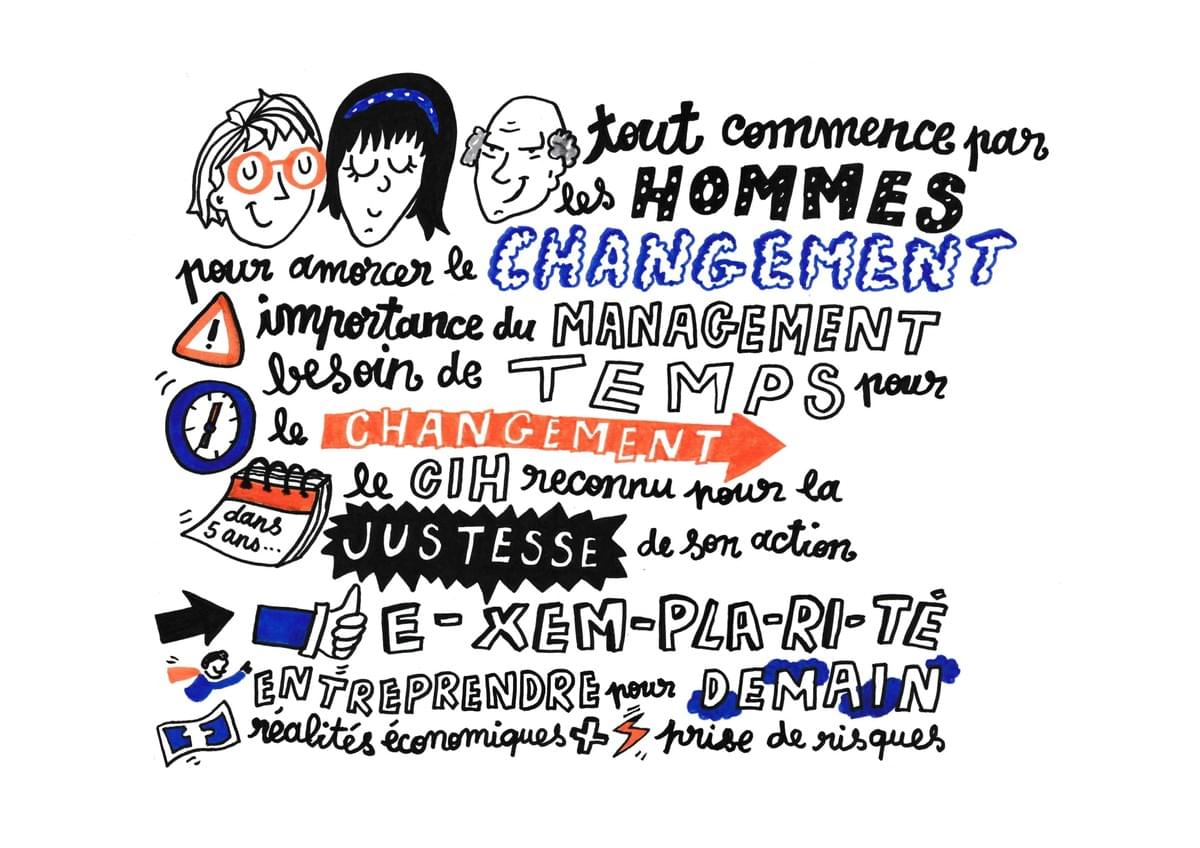 tout commence par
les HOMMES
pour amorcer le CHANGEMENT
! importance du MANAGEMENT
besoin de TEMPS pour
le CHANGEMENT
le CIH reconnu pour la
dans
5 ans...
JUSTESSE de son action
E-XEM-PLA-RI-TÉ
ENTREPRENDRE pour DEMAIN
réalités économiques + prise de risques